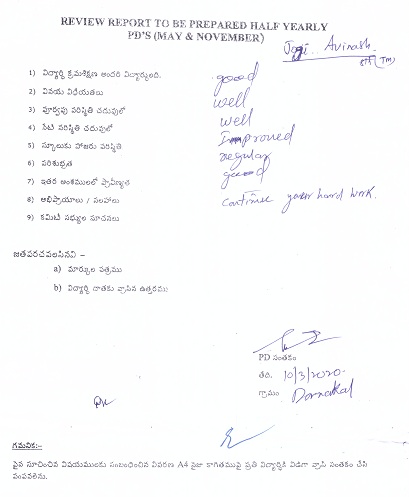 REVIEW REPORT TO BE PREPARED HALF YEARLY
PD'S (MAY & NOVEMBER)
Jogi Avinash
8th (TM)
1) విద్యార్థి క్రమశిక్షణ అందరి విద్యార్థులది. good
2) వినయ విధేయతలు well
3) పూర్వపు పరిస్థితి చదువులో well
4) నేటి పరిస్థితి చదువులో Improved
5) స్కూలుకు హాజరు పరిస్థితి regular
6) పరిశుభ్రత good
7) ఇతర అంశములలో ప్రావీణ్యత
8) అభిప్రాయాలు / సలహాలు continue your hard work.
9) కమిటీ సభ్యుల సూచనలు
జతపరచవలసినవి –
a) మార్కుల పత్రము
b) విద్యార్థి దాతకు వ్రాసిన ఉత్తరము
PD సంతకం
తేది. 10/3/2020.
గ్రామం Dornakal
గమనిక:–
పైన సూచించిన విషయములకు సంబంధించిన వివరణ A4 సైజు కాగితముపై ప్రతి విద్యార్థికి విడిగా వ్రాసి సంతకం చేసి
పంపవలెను.